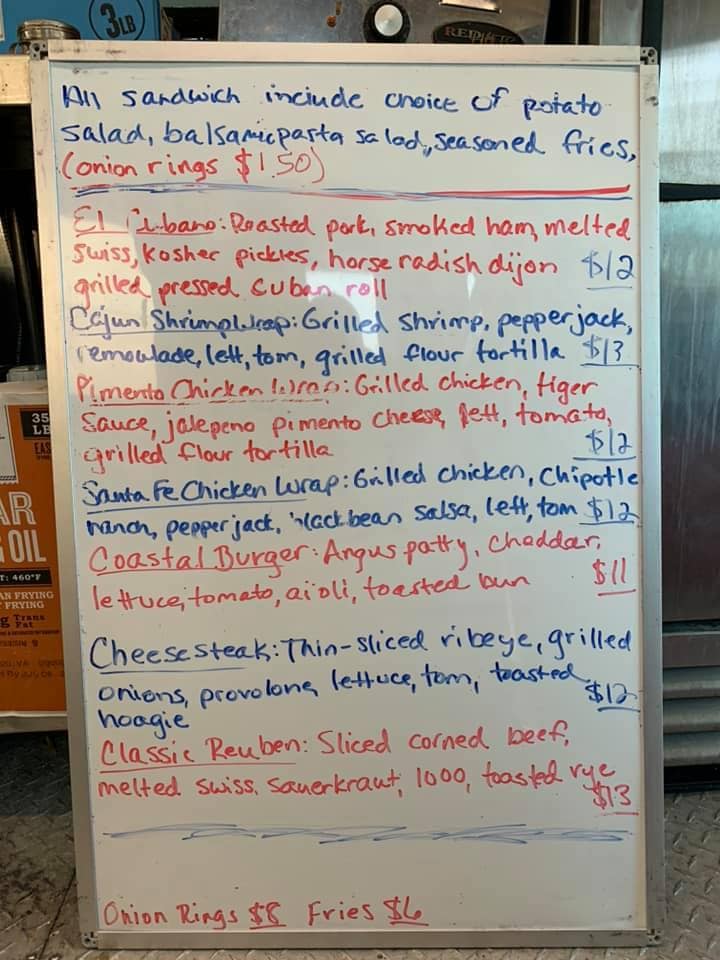 3LB
All sandwich include choice of potato
salad, balsamic pasta salad, seasoned fries,
(onion rings $1.50)
El Cubano: Roasted pork, smoked ham, melted
Swiss, Kosher pickles, horse radish dijon $12
grilled pressed cuban roll
Cajun Shrimp Wrap: Grilled shrimp, pepperjack,
remoulade, lett, tom, grilled flour tortilla $13
Pimento Chicken Wrap: Grilled chicken, tiger
Sauce, jalepeno pimento cheese, lett, tomato,
grilled flour tortilla $12
Santa Fe Chicken Wrap: Grilled chicken, Chipotle
ranch, pepperjack, black bean salsa, lett, tom $12
Coastal Burger: Angus patty, cheddar,
lettuce, tomato, aioli, toasted bun $11
Cheesesteak: Thin-sliced ribeye, grilled
onions, provolone, lettuce, tom, toasted $12
hoagie
Classic Reuben: Sliced corned beef,
melted swiss, sauerkraut, 1000, toasted rye
$13
Onion Rings $8 Fries $6
35
LB
AR
OIL
T: 460°F
AN FRYING
FRYING
g Trans
Fat